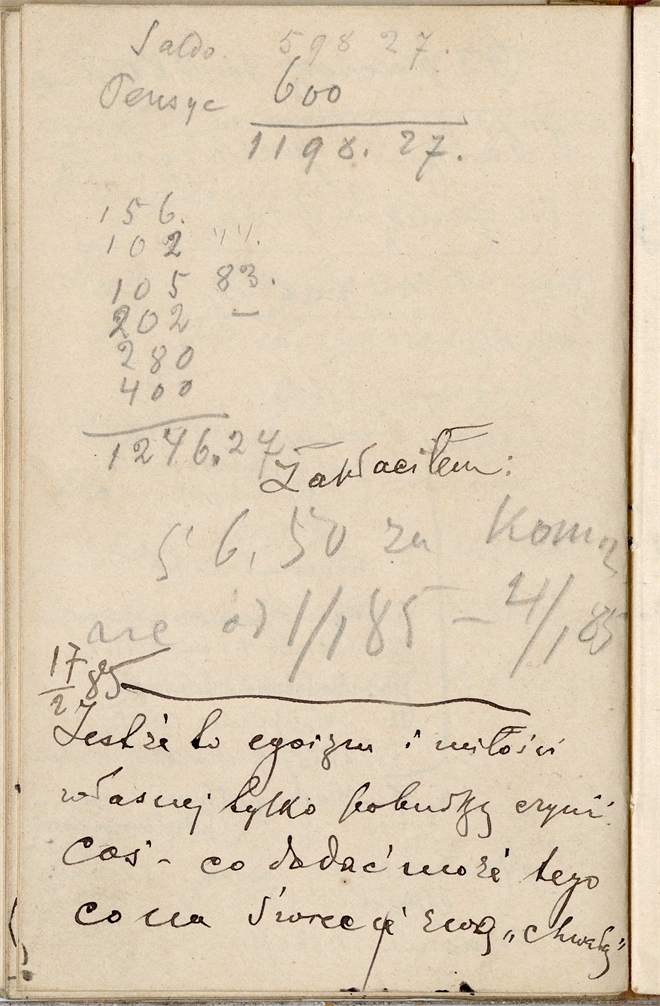 Saldo. 598 27.
Pensye 600
1198. 27.
156.
102 44.
105 83.
202 —
280
400
1246.27 —
Zapłaciłem:
56,50 za
od 1/1 85 — 4/1 85
17/2 85
Jestże to egoizm i miłości
własnej tylko pobudką czynić
coś - co dodać może tego
co na świecie zwą „chwałą”